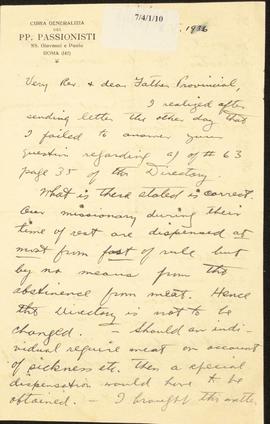 CURIA GENERALIZIA
DEI
PP. PASSIONISTI
SS. Giovanni e Paolo
ROMA (147)
7/4/1/10
1936
Very Rev. & dear Father Provincial,
I realized after
sending letter the other day that
I failed to answer your
question regarding a) of # 63
page 35 of the Directory.
What is there stated is correct.
Our missionary during their
time of rest are dispensed at
most from fast of rule but
by no means from the
abstinence from meat. Hence
the Directory is not to be
changed. — Should an indi-
vidual require meat on account
of sickness etc. then a special
dispensation would have to be
obtained. — I brought this matter